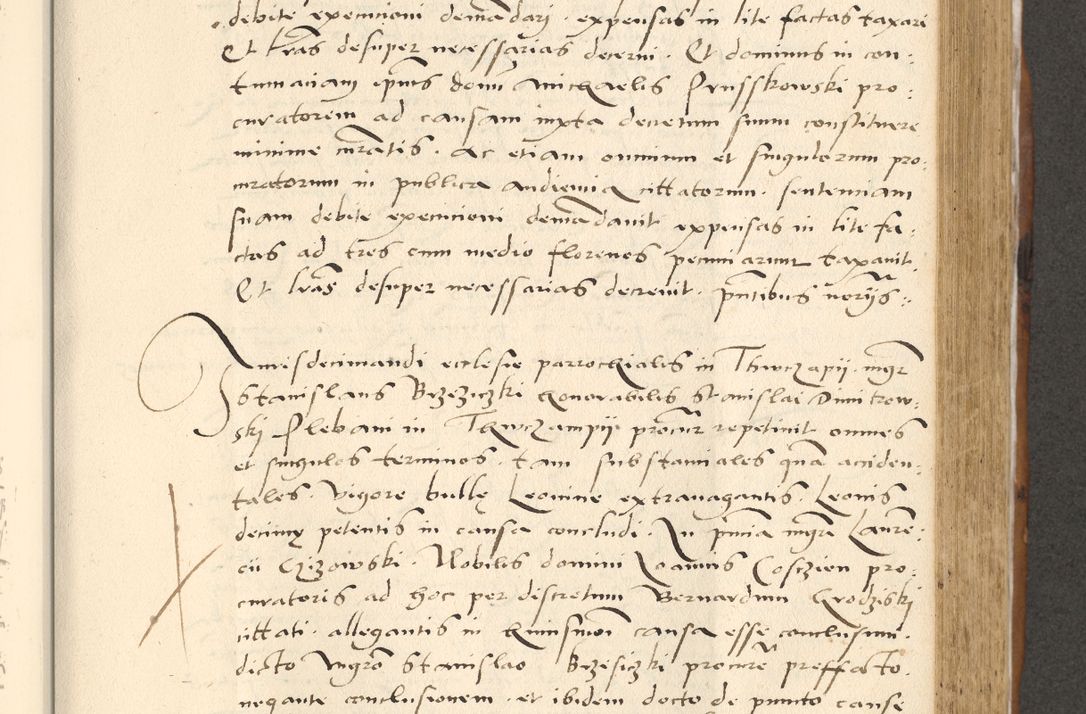 debite execucioni demādari · expensas in lite factas taxari
Et lr̄as desuper necessarias decerni · Et dominus in con-
tumaciam p̄ntis domī Michaelis Prusskowski pro-
curatorem ad causam iuxta decretum suum constituere
minime curātis · ac etiam omnium et singulorum pro-
curatorum in publica audiencia cittatorum · sentenciam
suam debite execucioni demādavit expensas in lite fa-
ctas ad tres cum medio florenos pecuniarum taxavit ·
Et lr̄as desuper necessarias decrevit · p̄ntibus
Jurisdecimandi ecclesie parrochialis in Thwczapii · mgr̄
Stanislaus Brzeziczki honorabilis Stanislai Dmitrow-
ski Plebani in Thwczampii procur̄ repetivit omnes
et singulos terminos · tam substanciales quā acciden-
tales · Vigore bullę Leonine extravagantis · Leonis
decimę petentis in causa concludi · In p̄ncia mgr̄i Lauren-
cii Czizowski · Nobilis domini Joannis Cosczien pro-
curatoris ad hoc per discretum Bernardum Grodziski
cittati · allegantis in huiusmōi causa esse conclusum ·
dicto mgr̄o Stanislao Brzesiczki procurē preffacto
negante conclusionem · et ibidem docto de puncto cause